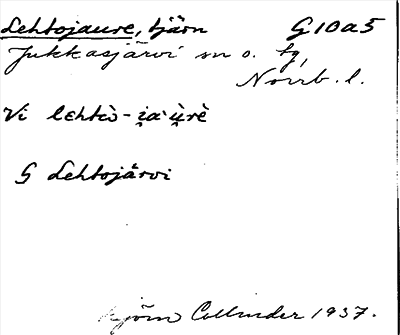 Lehtojaure, tjärn G10a5
Jukkasjärvi sn o. tg,
Norrb. l.
Vi lehtò- i̯a·u̯rè
G Lehtojärvi
Björn Collinder 1937.